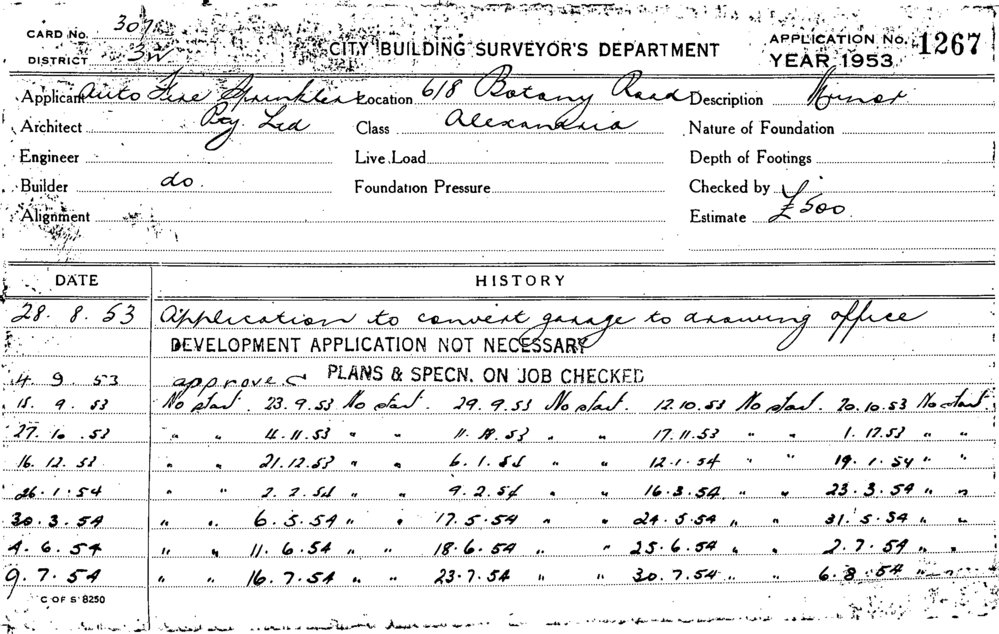 CARD No. 307
CITY BUILDING SURVEYOR'S DEPARTMENT
APPLICATION No. 1267
DISTRICT 3W
YEAR 1953
Applicant Auto Fire Sprinklers Location 618 Botany Road Description Minor
Architect Pty Ltd Class Alexandria Nature of Foundation
Engineer Live Load Depth of Footings
Builder do. Foundation Pressure Checked by
Alignment Estimate £500
DATE HISTORY
28. 8. 53 Application to convert garage to drawing office
DEVELOPMENT APPLICATION NOT NECESSARY
4. 9. 53 approved PLANS & SPECN. ON JOB CHECKED
15. 9. 53 No start. 23.9.53 No start. 29.9.53 No start. 12.10.53 No start. 20.10.53 No start.
27. 10. 53 " " 4.11.53 " " 11.11.53 " " 17.11.53 " " 1.12.53 " "
16. 12. 53 " " 21.12.53 " " 6.1.54 " " 12.1.54 " " 19.1.54 " "
26.1.54 " " 2.2.54 " " 9.2.54 " " 16.3.54 " " 23.3.54 " "
30.3.54 " " 6.5.54 " " 17.5.54 " " 24.5.54 " " 31.5.54 " "
4.6.54 " " 11.6.54 " " 18.6.54 " " 25.6.54 " " 2.7.54 " "
9.7.54 " " 16.7.54 " " 23.7.54 " " 30.7.54 " " 6.8.54 " "
C OF S 8250